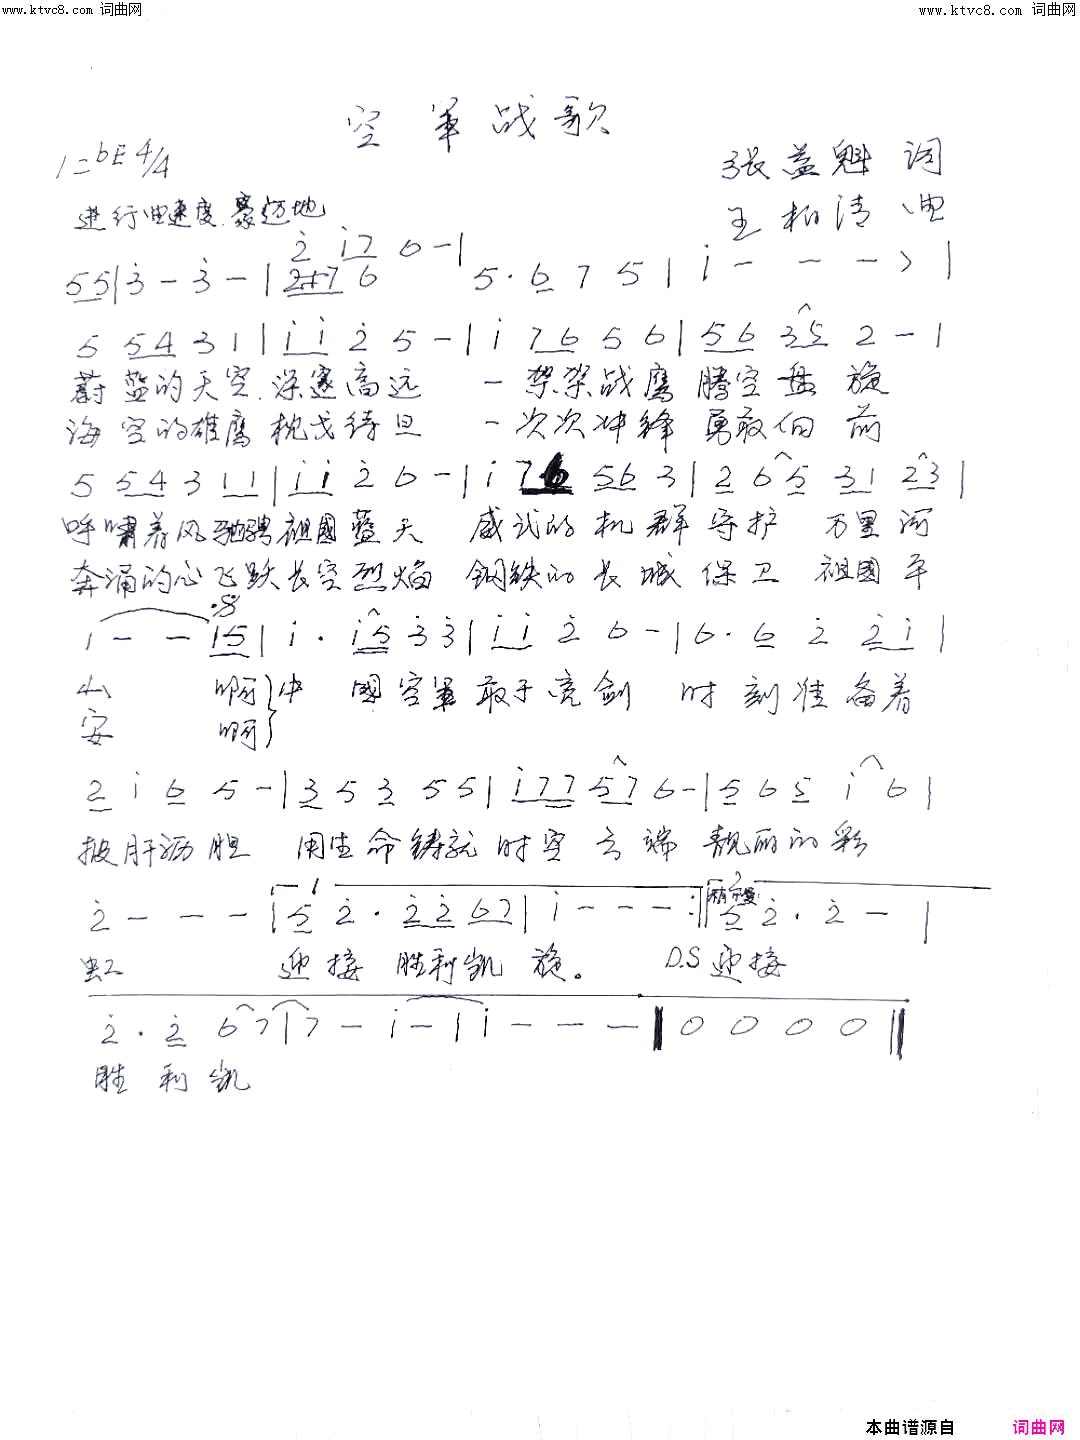 www.ktvc8.com 词曲网 www.ktvc8.com 词曲网
空军战歌
1=bE 4/4
张益魁 词
进行曲速度.豪迈地
王柏清 曲
2̇ i7 6 - |
55 | 3̇ - 3̇ - | 6 5. 6 7 5 | i - - - > |
5 54 3 1 | i i 2̇ 5 - | i 76 5 6 | 56 35 2 - |
蔚蓝的天空.深邃高远 一架架战鹰腾空盘旋
海空的雄鹰枕戈待旦 一次次冲锋勇敢向前
5 54 3 11 | i i 2̇ 6 - | i 76 56 3 | 2 6 5 31 23 |
呼啸着风驰骋祖國蓝天 威武的机群守护 万里河
奔涌的心飞跃长空烈焰 钢铁的长城保卫 祖國平
i - - i5 | i . i5 3̇ 3̇ | i i 2̇ 6 - | 6 . 6 2̇ 2̇ i |
山 啊}中 國空军敢于亮剑 时刻准备着
安 啊}
2̇ i 6 5 - | 3 5 3 5 5 | i77 576 - | 5 6 5 i 6 |
披肝沥胆 用生命铸就时空云端靓丽的彩
2̇ - - - | 1 5 2̇ . 2̇ 2̇ 67 | i - - - :‖ 2 5 2̇ . 2̇ - |
虹 迎接胜利凯旋。 D.S 迎接
2̇ . 2̇ 67 | 7 - i - | i - - - ‖ 0 0 0 0 ‖
胜利凯
本曲谱源自 词曲网